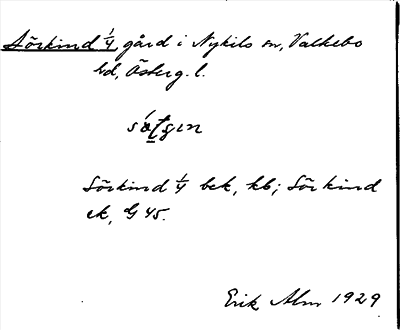 Sörkind 1/4, gård i Nykils sn, Valkebo
hd, Österg. l.
Sörkind 1/4 bek, kb; Sörkind
ek, G 45.
Erik Alm 1929